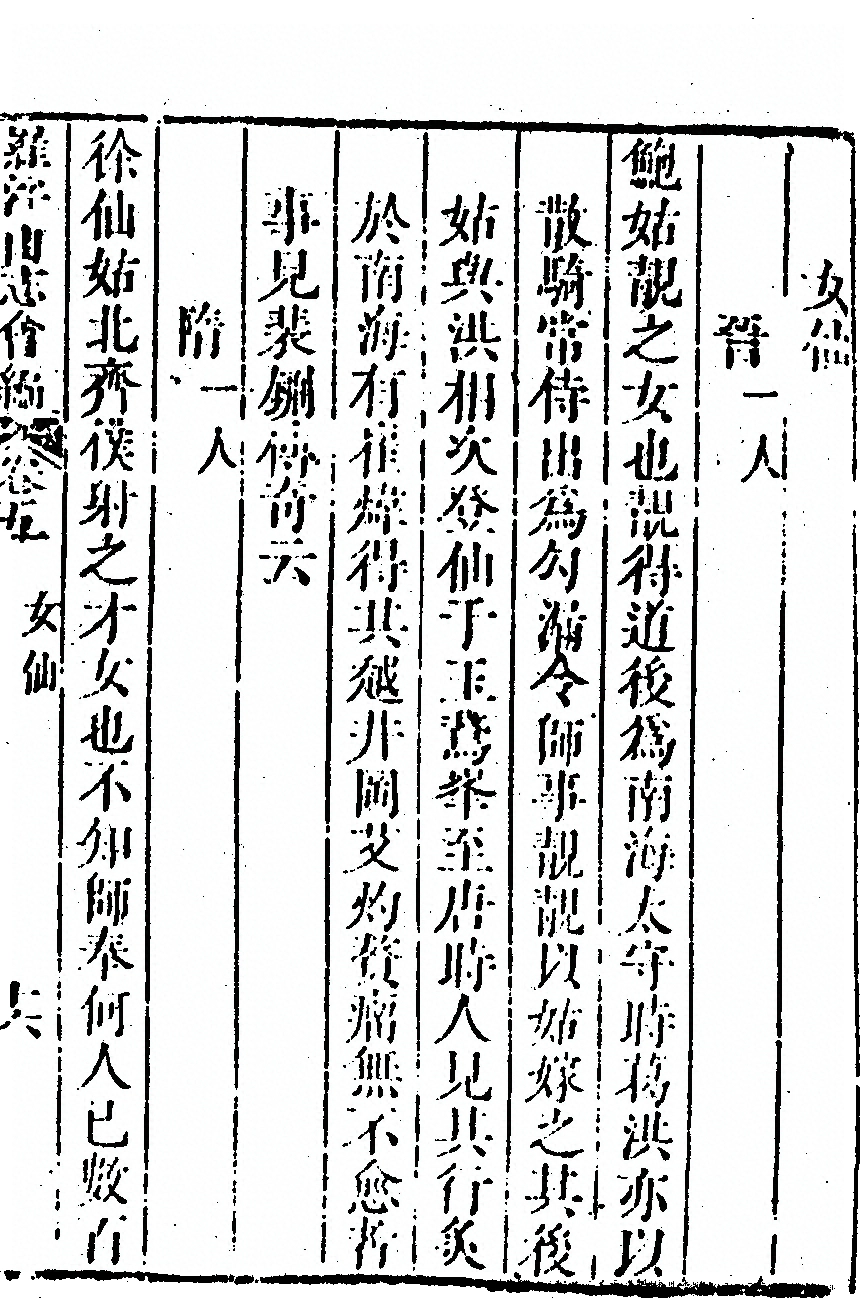 女仙
晉一人
鮑姑靚之女也靚得道後爲南海太守時葛洪亦以
散騎常侍出爲勾漏令師事靚靚以姑嫁之其後
姑與洪相次登仙于玉鵞峯至唐時人見其行灸
於南海有崔煒得其越井岡艾灼贅瘤無不愈者
事見裴鉶傳奇云
隋一人
徐仙姑北齊僕射之才女也不知師奉何人已數百
羅浮山志會編 卷五 女仙 六